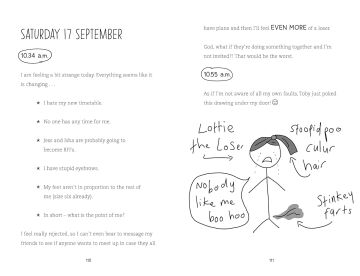 SATURDAY 17 SEPTEMBER
10.34 a.m.
I am feeling a bit strange today. Everything seems like it
is changing . . .
★ I hate my new timetable.
★ No one has any time for me.
★ Jess and Isha are probably going to
become BFFs.
★ I have stupid eyebrows.
★ My feet aren't in proportion to the rest of
me (size six already).
★ In short – what is the point of me?
I feel really rejected, so I can't even bear to message my
friends to see if anyone wants to meet up in case they all
110
have plans and then I'll feel EVEN MORE of a loser.
God, what if they're doing something together and I'm
not invited?! That would be the worst.
10.55 a.m.
As if I'm not aware of all my own faults, Toby just poked
this drawing under my door!
Lottie
the Loser
stoopid poo
culur
hair
Nobody
like me
boo hoo
Stinkey
farts
111